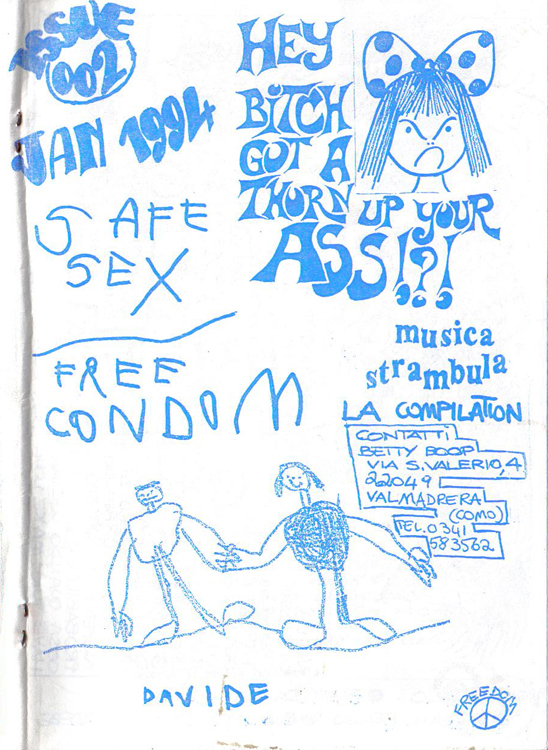 ISSUE
002
JAN 1994
SAFE
SEX
FREE
CONDOM
HEY
BITCH
GOT A
THORN UP YOUR
ASS!?!
musica
strambula
LA COMPILATION
CONTATTI
BETTY BOOP
VIA S. VALERIO, 4
22049
VALMADRERA
(COMO)
TEL. 0341
583562
DAVIDE
FREEDOM